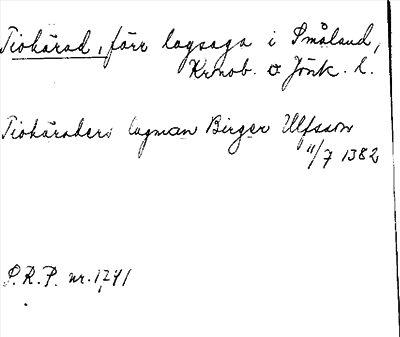 Tiohärad, förr lagsaga i Småland,
Kronob. o. Jönk. l.
Tiohäraders lagman Birger Ulfsson
11/7 1382
S.R.P. nr. 1741